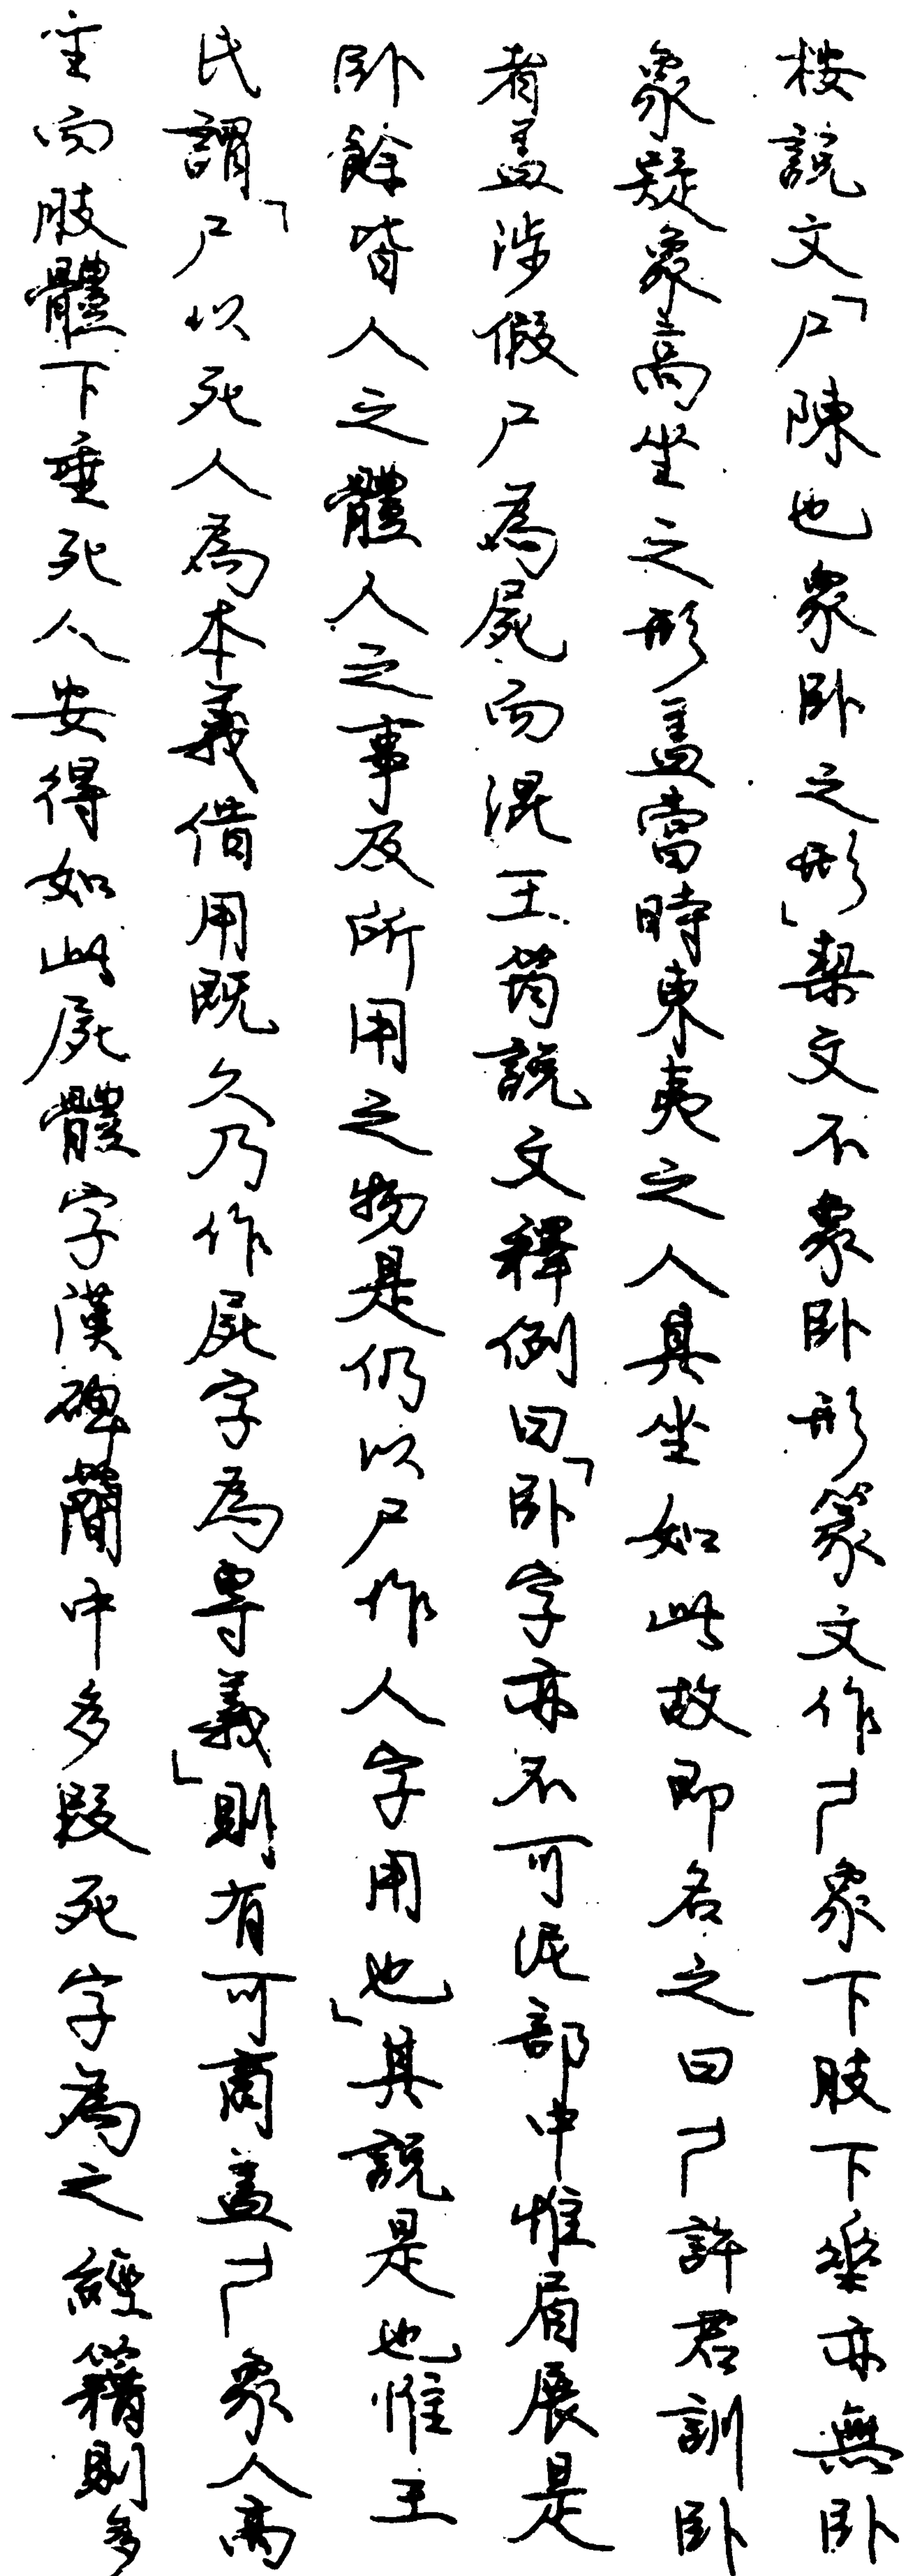 按説文「尸陳也象卧之形」栔文不象卧形篆文作尸象下肢下垂亦無卧
象疑象高坐之形蓋當時東夷之人其坐如此故即名之曰尸許君訓卧
者蓋涉假尸為屍而混王筠説文釋例曰「卧字亦不可泥部中惟眉展是
卧餘皆人之體人之事及所用之物是仍以尸作人字用也」其説是也惟王
氏謂「尸以死人為本義借用既久乃作屍字為專義」則有可商蓋尸象人高
坐而肢體下垂死人安得如此屍體字漢碑簡中多叚死字為之經籍則多